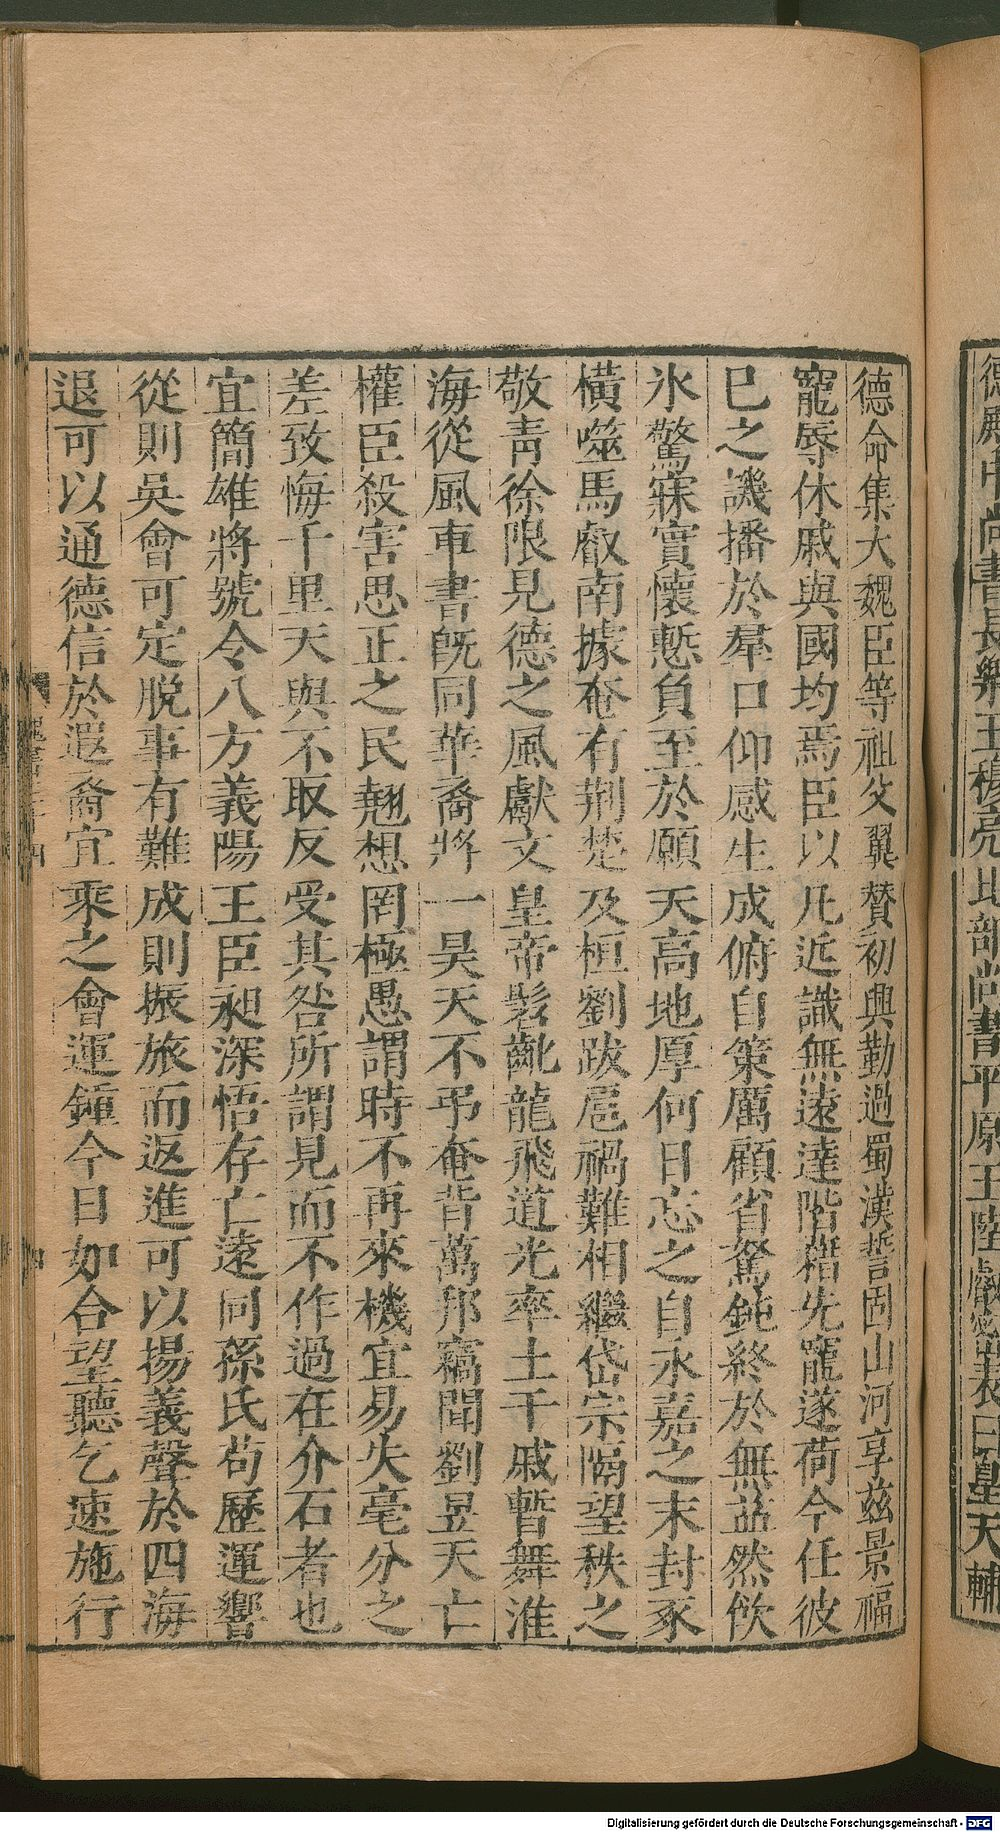 德殿中尚書長樂王穆亮比部尚書平原王陸叡密表曰皇天輔
德命集大魏臣等祖父翼贊初興勤過蜀漢誓固山河享茲景福
寵辱休戚與國均焉臣以凡近識無遠達階藉先寵遂荷今任彼
已之譏播於羣口仰感生成俯自策厲顧省駑鈍終於無益然飲
氷驚寐實懷慙負至於願天高地厚何日忘之自永嘉之末封豕
橫噬馬叡南據奄有荆楚及桓劉跋扈禍難相繼岱宗隔望秩之
敬青徐限見德之風獻文皇帝髫齔龍飛道光率土干戚暫舞淮
海從風車書旣同華裔將一昊天不弔奄背萬邦竊聞劉昱天亡
權臣殺害思正之民翹想罔極愚謂時不再來機宜易失毫分之
差致悔千里天與不取反受其咎所謂見而不作過在介石者也
宜簡雄將號令八方義陽王臣昶深悟存亡遠同孫氏苟歷運響
從則吳會可定脱事有難成則振旅而返進可以揚義聲於四海
退可以通德信於遐裔宜乘之會運鍾今日如合望聽乞速施行
Digitalisierung gefördert durch die Deutsche Forschungsgemeinschaft - DFG